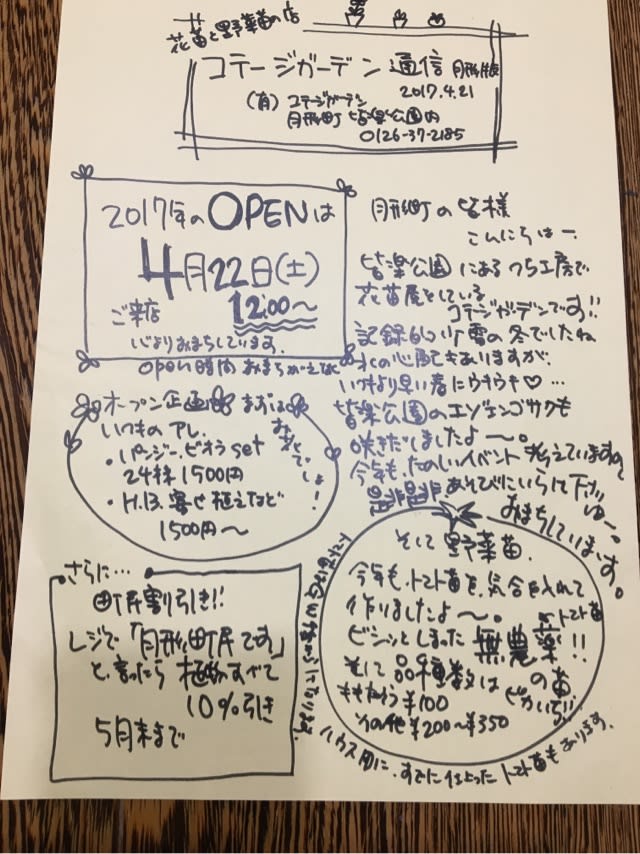 花苗と野菜苗の店
コテージガーデン通信 月形版
2017.4.21
(有)コテージガーデン
月形町 皆楽公園内
0126-37-2185
2017年のOPENは
4月22日(土)
ご来店 12:00〜
心よりおまちしています。
open時間おまちがえなく
オープン企画 まずは
いつものアレ。
・パンジー、ビオラset
24株1500円
・H.B.寄せ植えなど
1500円〜
おたのしみでしょ!
さらに…
町民割引き!!
レジで「月形町民です」
と言ったら植物すべて
10%引き
5月末まで
月形町の皆様
こんにちはー。
皆楽公園にあるつち工房で
花苗屋をしている
コテージガーデンです!!
記録的小雪の冬でしたね
水の心配もありますが、
いつもより早い春にウキウキ♡…
皆楽公園のエゾエンゴサクも
咲きだしましたよ〜。
今年も、たのしいイベント考えていますので
是非是非あそびにいらして下さいー。
おまちしています。
そして野菜苗。
今年も、トマト苗を、気合を入れて
作りましたよ〜。
トマト苗
ビシッとしまった無農薬!!の苗
そして品種数はピカいち!!
ももたろう¥100
その他¥200〜¥350
ハウス用に、すでに仕上ったトマト苗もあります。